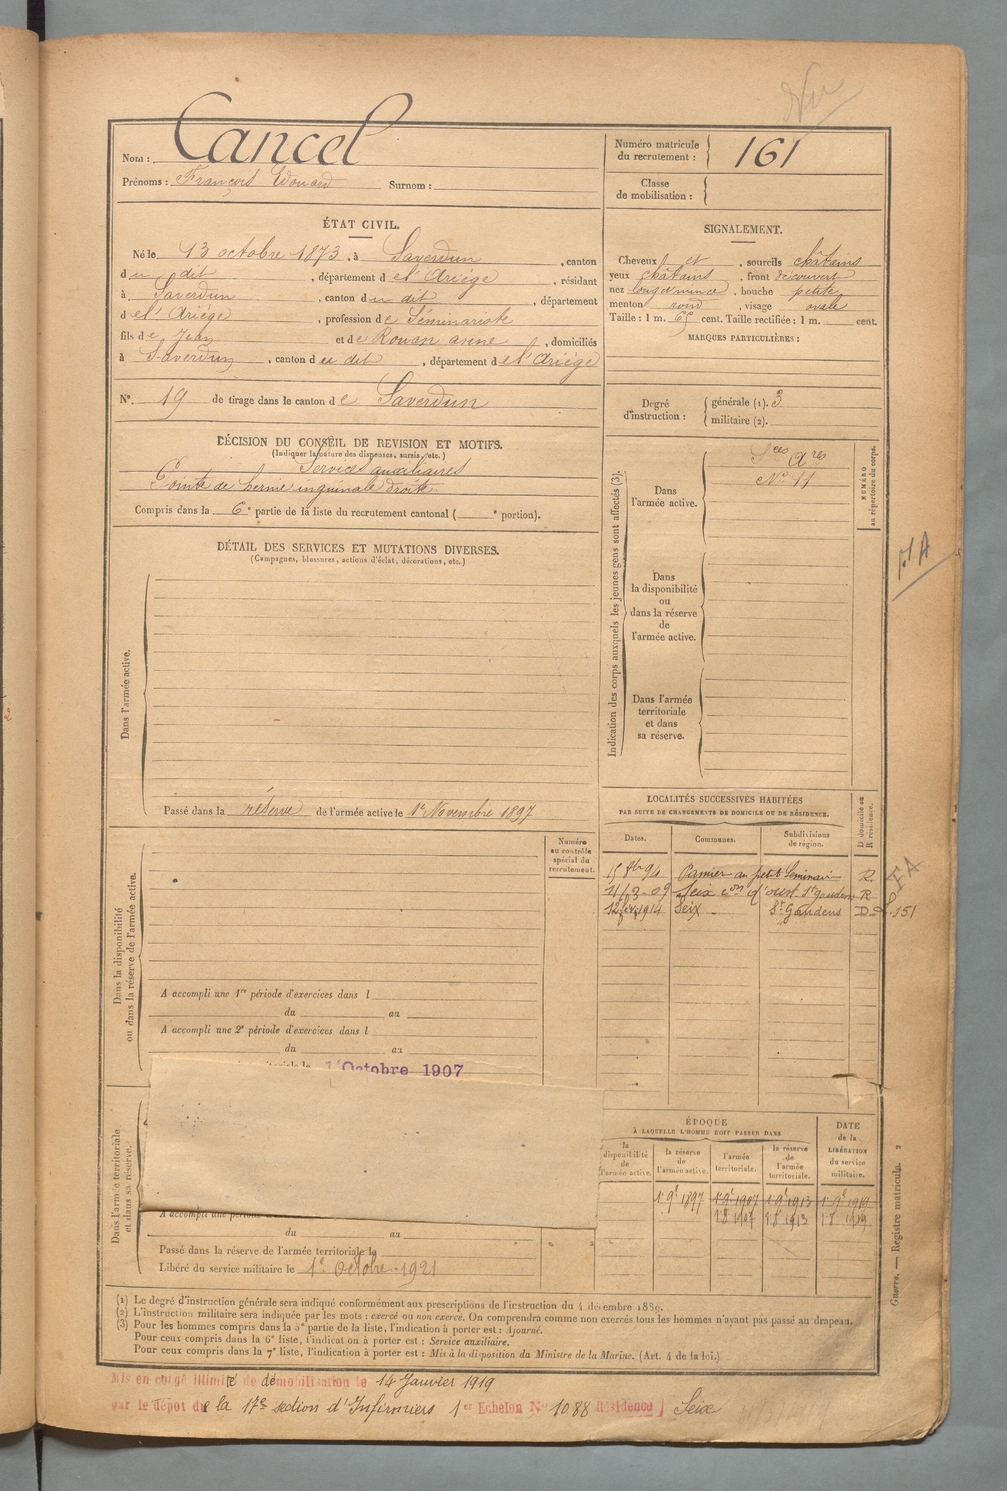 Nom : Cancel
Prénoms : François Edouard Surnom :
Numéro matricule du recrutement : 161
Classe de mobilisation :
ÉTAT CIVIL.
Né le 13 octobre 1873, à Saverdun, canton
du dit, département de l'Ariège, résidant
à Saverdun, canton du dit, département
de l'Ariège, profession de Séminariste
fils de Jean et de Rouan anne, domiciliés
à Saverdun, canton du dit, département de l'Ariège
N°. 19 de tirage dans le canton de Saverdun
SIGNALEMENT.
Cheveux et, sourcils châtains
yeux châtains, front découvert
nez long et mince, bouche petite
menton rond, visage ovale
Taille : 1 m. 65 cent. Taille rectifiée : 1 m. cent.
MARQUES PARTICULIÈRES :
Degré d'instruction : générale (1). 3
militaire (2).
DÉCISION DU CONSEIL DE REVISION ET MOTIFS.
(Indiquer la nature des dispenses, sursis, etc.)
Services auxiliaires
Pointe de hernie inguinale droite
Compris dans la 6e partie de la liste du recrutement cantonal ( e portion).
DÉTAIL DES SERVICES ET MUTATIONS DIVERSES.
(Campagnes, blessures, actions d'éclat, décorations, etc.)
Dans l'armée active.
Passé dans la réserve de l'armée active le 1er Novembre 1897
Indication des corps auxquels les jeunes gens sont affectés (3).
NUMÉRO au répertoire du corps.
Dans l'armée active.
Sces Ares
N° 11
Dans la disponibilité ou dans la réserve de l'armée active.
Dans l'armée territoriale et dans sa réserve.
LOCALITÉS SUCCESSIVES HABITÉES
PAR SUITE DE CHANGEMENTS DE DOMICILE OU DE RÉSIDENCE.
D domicile ou R résidence.
Dates. Communes. Subdivisions de région.
15 8bre 94 Pamier au petit Séminair R.
Seix con d'oust St Gaudens R
1914 Seix St Gaudens D 151
Dans la disponibilité ou dans la réserve de l'armée active.
Numéro au contrôle spécial du recrutement.
A accompli une 1re période d'exercices dans l
du au
A accompli une 2e période d'exercices dans l
du au
1er Octobre 1907
Dans l'armée territoriale et dans sa réserve.
A accompli une
du au
Passé dans la réserve de l'armée territoriale le
Libéré du service militaire le 1er Octobre 1921
ÉPOQUE
À LAQUELLE L'HOMME DOIT PASSER DANS
la disponibilité de l'armée active.
la réserve de l'armée active.
l'armée territoriale.
la réserve de l'armée territoriale.
DATE de la LIBÉRATION du service militaire.
Guerre. — Registre matricule. 2
(1) Le degré d'instruction générale sera indiqué conformément aux prescriptions de l'instruction du 4 décembre 1889.
(2) L'instruction militaire sera indiquée par les mots : exercé ou non exercé. On comprendra comme non exercés tous les hommes n'ayant pas passé au drapeau.
(3) Pour les hommes compris dans la 5e partie de la liste, l'indication à porter est : Ajourné.
Pour ceux compris dans la 6e liste, l'indication à porter est : Service auxiliaire.
Pour ceux compris dans la 7e liste, l'indication à porter est : Mis à la disposition du Ministre de la Marine. (Art. 4 de la loi.)
Mis en congé illimité de démobilisation le 14 Janvier 1919
par le dépot de la 17e section d'Infirmiers 1er Echelon No 1088 Résidence Seix